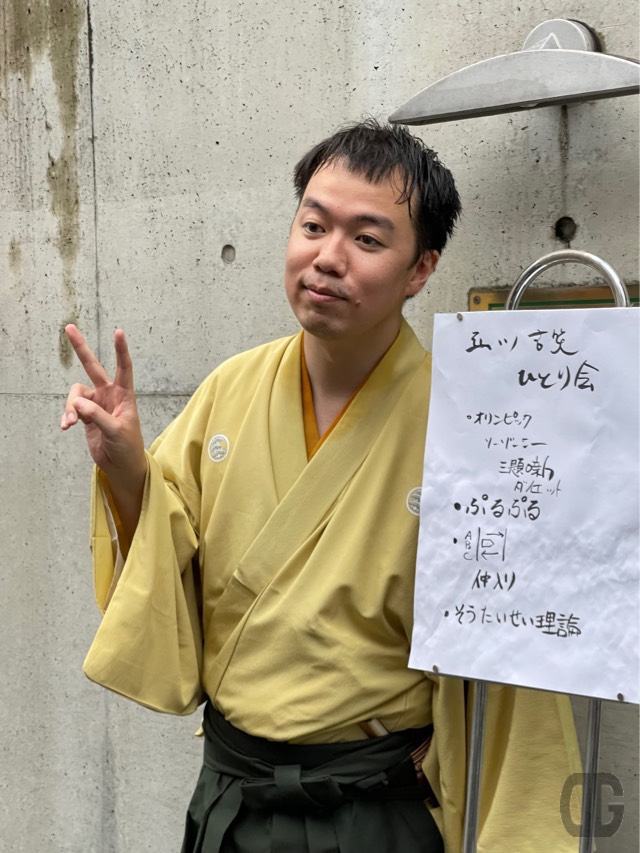 立川吉笑
ひとり会
・オリンピック
ソーゾーシー
三題噺
ダイエット
・ぷるぷる
・
ABC
仲入り
・そうたいせい理論
CG